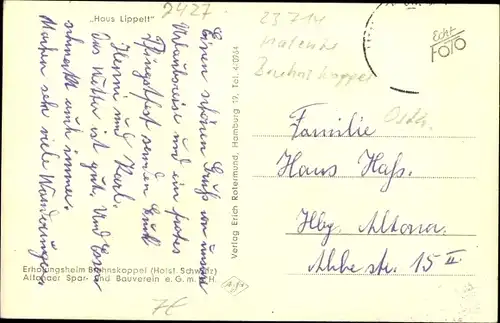 „Haus Lippelt"
2427
Einen schönen Gruß von unser
Urlaubsreise und ein frohes
Pfingstfest senden Euch
Henni und Karl.
Das Wetter ist gut. Und Essen
schmeckt auch immer.
Machen sehr viele Wanderungen.
Erholungsheim Bruhnskoppel (Holst. Schweiz)
Altonaer Spar- und Bauverein e.G.m.b.H.
Verlag Erich Rotermund, Hamburg 19, Tel. 440964
23714
Malente
Bruhnskoppel
Echt
FOTO
Familie
Hans Haß.
Hbg. Altona.
str. 15 II.
7€